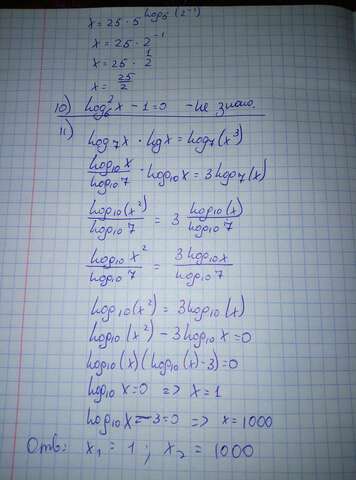 x = 25 · 5^log₅(2⁻¹)
x = 25 · 2⁻¹
x = 25 · 1/2
x = 25/2
10) log₆²x - 1 = 0 - не знаю.
11)
log₇x · lgx = log₇(x³)
log₁₀x/log₁₀7 · log₁₀x = 3log₇(x)
log₁₀(x²)/log₁₀7 = 3 log₁₀(x)/log₁₀7
log₁₀x²/log₁₀7 = 3log₁₀x/log₁₀7
log₁₀(x²) = 3log₁₀(x)
log₁₀(x²) - 3log₁₀x = 0
log₁₀(x)(log₁₀(x)-3) = 0
log₁₀x = 0 => x = 1
log₁₀x - 3 = 0 => x = 1000
Отв: x₁ = 1 ; x₂ = 1000